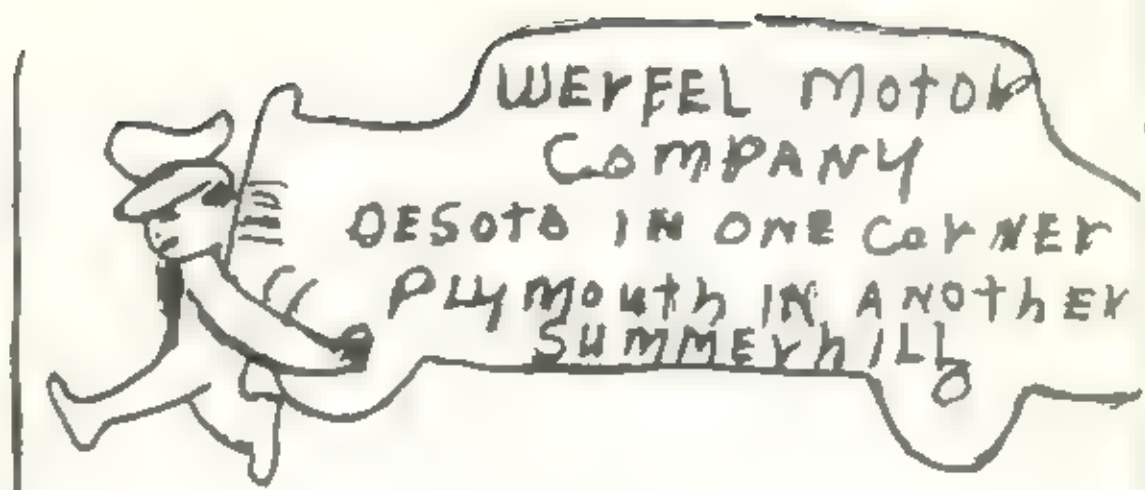 WErFEL Motor
CoMPANY
DESOTO IN ONE CorNEr
PLyMouth IN ANOthEr
SUMMErhILL